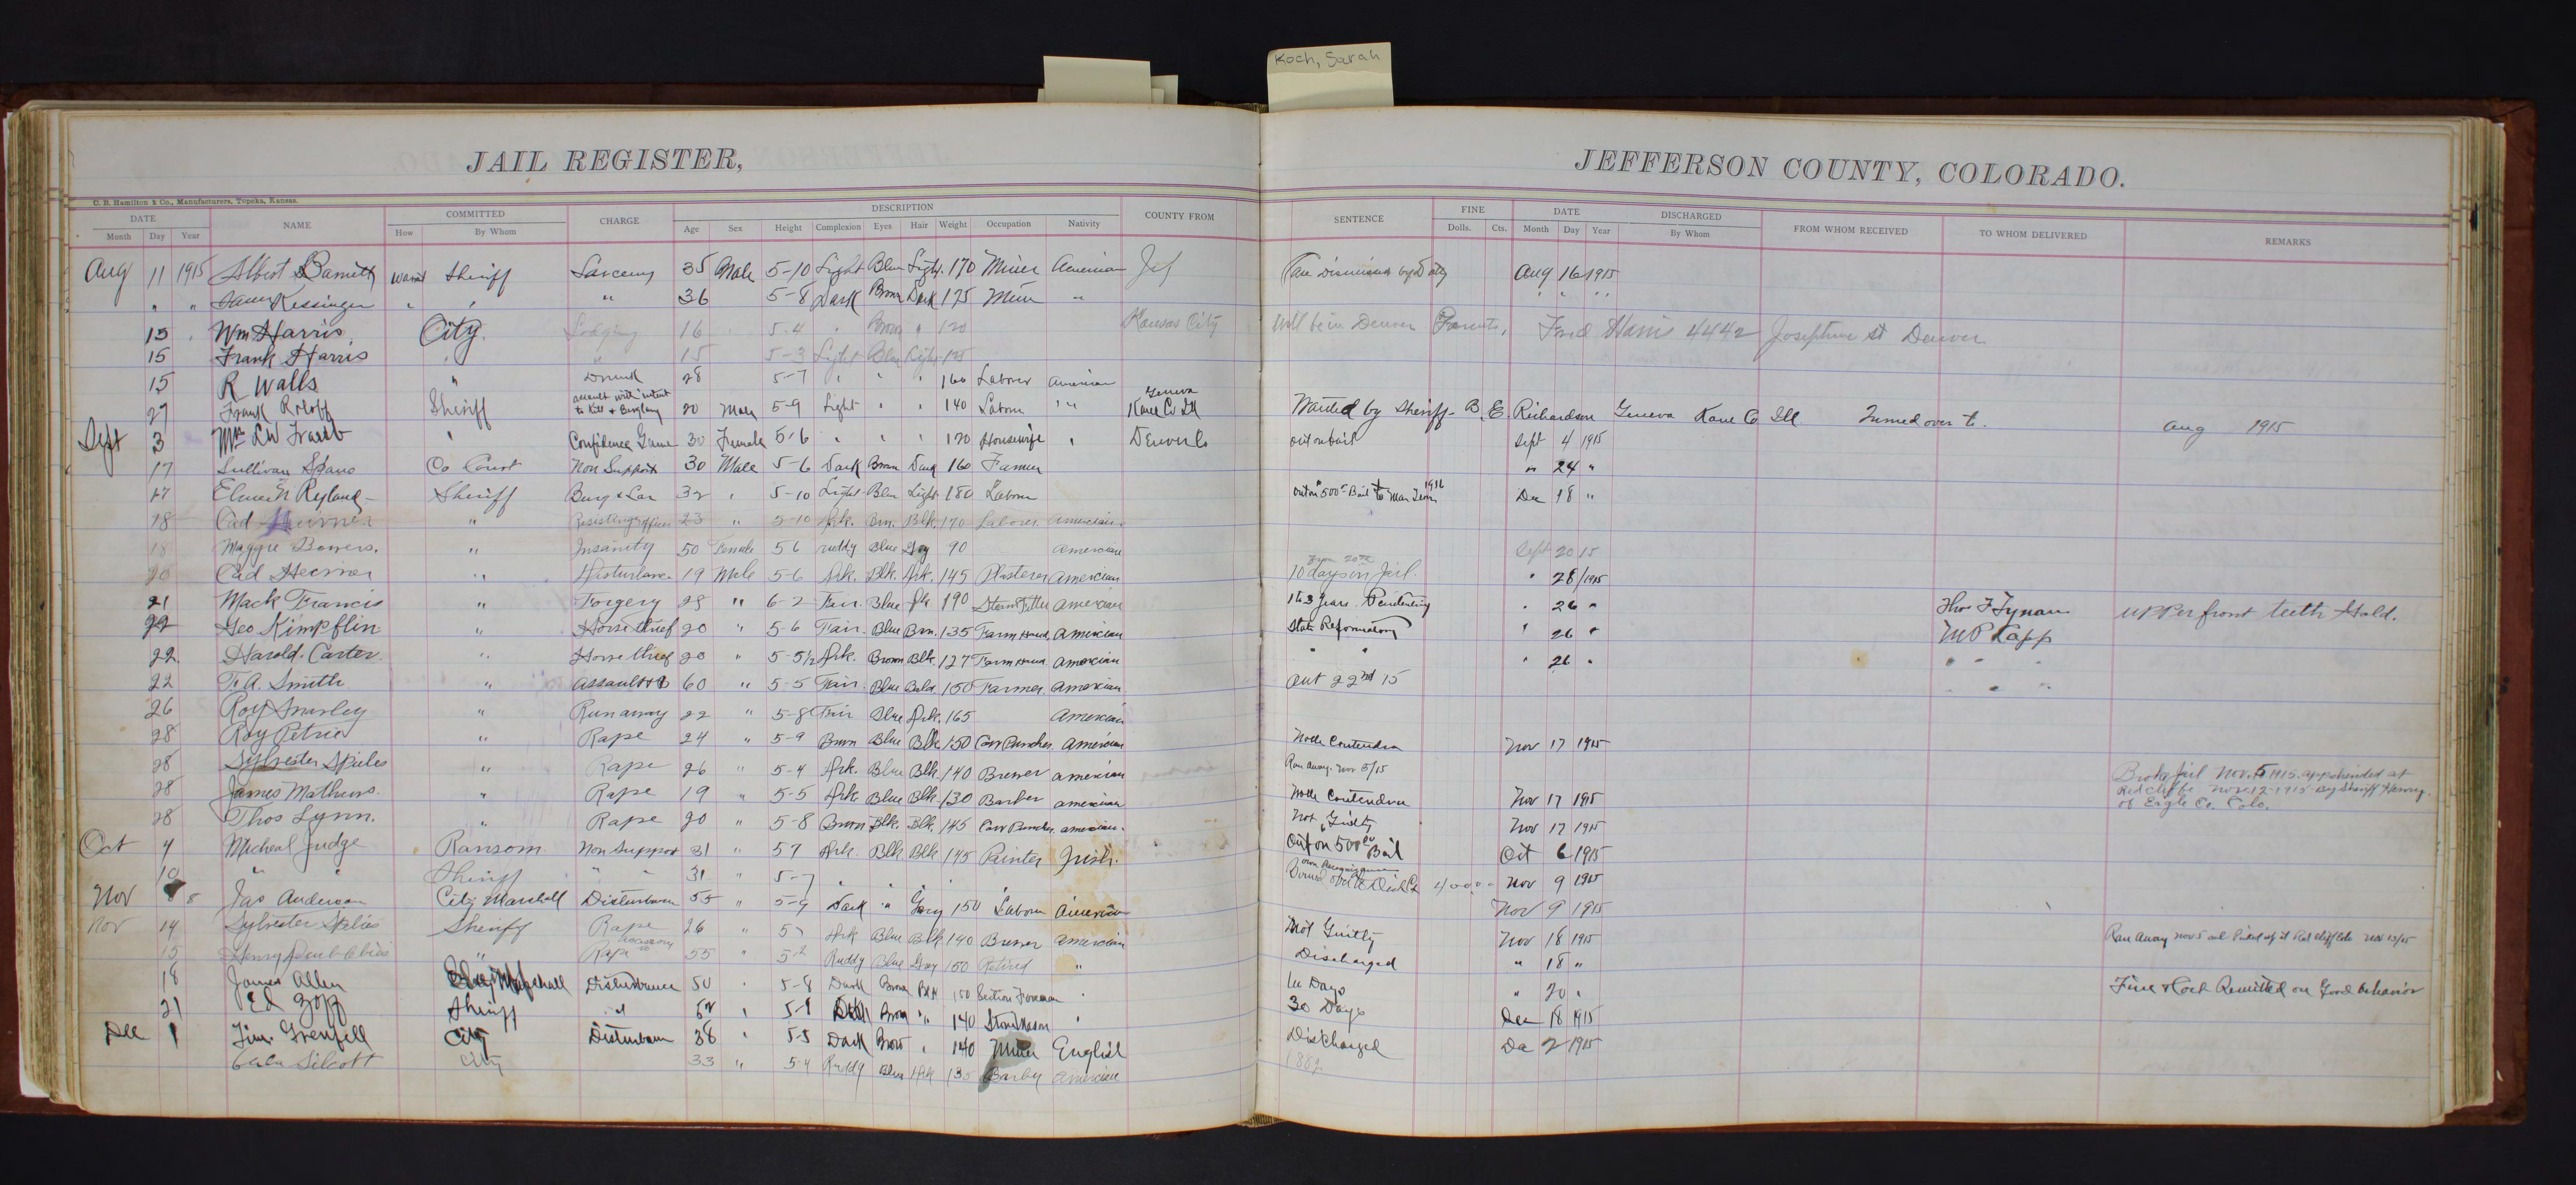 Koch, Sarah
JAIL REGISTER,
JEFFERSON COUNTY, COLORADO.
C. B. Hamilton & Co., Manufacturers, Topeka, Kansas.
DATE NAME COMMITTED CHARGE DESCRIPTION COUNTY FROM SENTENCE FINE DATE DISCHARGED FROM WHOM RECEIVED TO WHOM DELIVERED REMARKS
Month Day Year How By Whom Age Sex Height Complexion Eyes Hair Weight Occupation Nativity Dolls. Cts. Month Day Year By Whom
Aug 11 1915 Albert Barnett Sheriff Larceny 35 Male 5-10 Light Blue Light 170 Miner American Jef Aug 16 1915
" " Kessinger " " " 36 5-8 Dark Brown Dark 175 Miner " " " "
15 Wm Harris City. Lodging 16 5-4 " Brown " 120 Kansas City Will be in Denver Parents, Fred Harris 4442 Josephine St Denver
15 Frank Harris " " 15 5-3 Light Blue Light 125
15 R Walls " Drunk 28 5-7 " " " 160 Laborer American
27 Frank Sheriff assault with intent to Kill & Burglary 20 Male 5-9 Light " " 140 Labor " Geneva Kane Co Ill Wanted by Sheriff B. E. Richardson Geneva Kane Co Ill Turned over to Aug 1915
Sept 3 Mrs " Confidence Game 30 Female 5-6 " " " 120 Housewife " Denver Co out on bail Sept 4 1915
17 Sullivan Co Court Non Support 30 Male 5-6 Dark Brown Dark 160 Farmer " 24 "
17 Elmer Ryland Sheriff Burg & Lar 32 " 5-10 Light Blue Light 180 Labor out on 500 Bail to Mar Term 1916 Dec 18 "
18 " Resisting officer 23 " 5-10 Drk. Brn. Blk. 170 Laborer American
18 Maggie Bowers. " Insanity 50 Female 56 ruddy Blue Gray 90 American Sept 20 15
20 " Disturbance 19 Male 5-6 Drk. Blk. Drk. 145 Plasterer American from 20th 10 days in Jail. " 28 1915
21 Mack Francis " Forgery 28 " 6-2 Fair. Blue 190 Steam Fitter American 1 to 3 Years Penitentiary " 26 " Thos F Tynan upper front teeth Gold.
22 Geo Kimpflin " Horse thief 20 " 5-6 Fair. Blue Brn. 135 Farm Hand. American State Reformatory " 26 " M P Capp
22 Harold. Carter " Horse thief 20 " 5-5½ Drk. Brown Blk. 127 Farm Hand. American " " " 26 " " " "
22 T. A. Smith " 60 " 5-5 Fair. Blue Bald 150 Farmer. American out 22nd 15 " "
26 Roy " Runaway 22 " 5-8 Fair Blue Drk. 165 American
28 Roy Petrie " Rape 24 " 5-9 Brown Blue Blk. 150 Cow Puncher. American Nov 17 1915
28 Sylvester " Rape 26 " 5-4 Drk. Blue Blk. 140 Brewer American Ran away. Nov 5/15 Broke Jail Nov. 5 1915. apprehended at Redcliffe Nov. 12-1915 by Sheriff
28 James Mathews. " Rape 19 " 5-5 Drk Blue Blk 130 Barber American Nov 17 1915 of Eagle Co. Colo.
28 Thos Lynn. " Rape 20 " 5-8 Brown Blk. Blk. 145 Cow Puncher. American. Not Guilty Nov 17 1915
Oct 4 Micheal Judge Ransom Non Support 31 " 57 Drk. Blk Blk 145 Painter Irish. Out on 500 00 Bail Oct 6 1915
10 " " Sheriff " " 31 " 5-7 " " " " own Recognizance Nov 9 1915
Nov 8 Jas Anderson City Marshall Disturbance 55 " 5-9 Dark " Gray 150 Laborer American Nov 9 1915
Nov 14 Sylvester Sheriff Rape 26 " 57 Drk Blue Blk 140 Brewer American Not Guilty Nov 18 1915 Ran Away Nov 5 and Picked up at Red Cliff Colo Nov 13/15
15 Henry " Rape accessory to 55 " 5-2 Ruddy Blue Gray 150 Retired " Discharged " 18 "
18 James Allen Marshall Disturbance 50 " 5-8 Dark Brown Blk 150 Section Foreman " Days " 20 " Fine & Cost Remitted on Good behavior
21 Ed Zopf Sheriff " " 5-9 Brown " 140 Stone Mason " 30 Days Dec 18 1915
Dec 1 Jim. Grenfell City Disturbance 38 " 5-5 Dark Brown " 140 Miner English Discharged Dec 2 1915
Silcott City 33 " 5-4 Ruddy Blue Drk 135 American